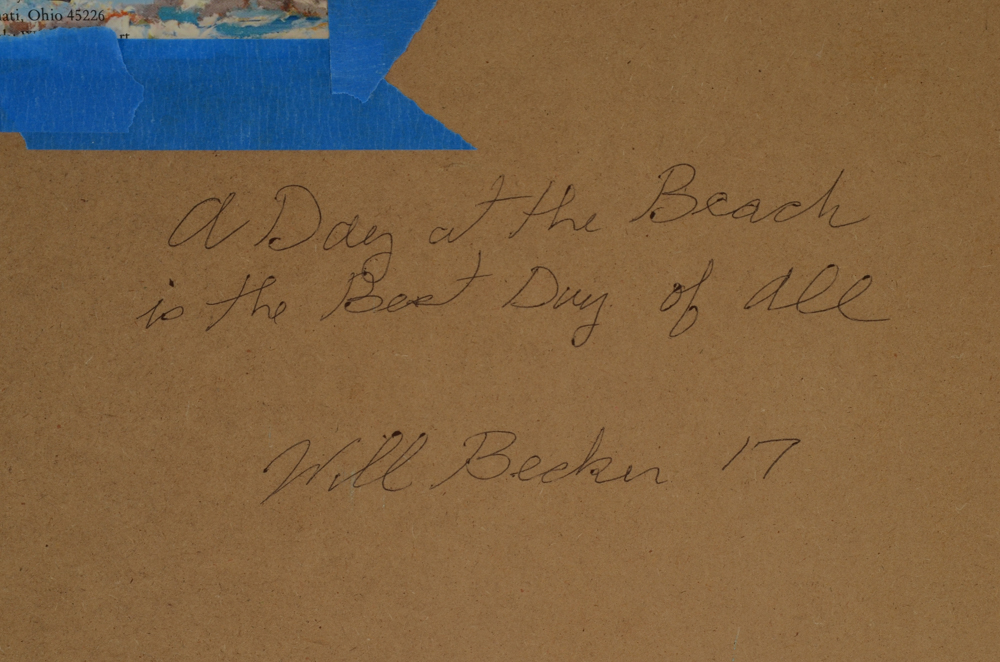 ati, Ohio 45226
A Day at the Beach
is the Best Day of All
Will Becker 17